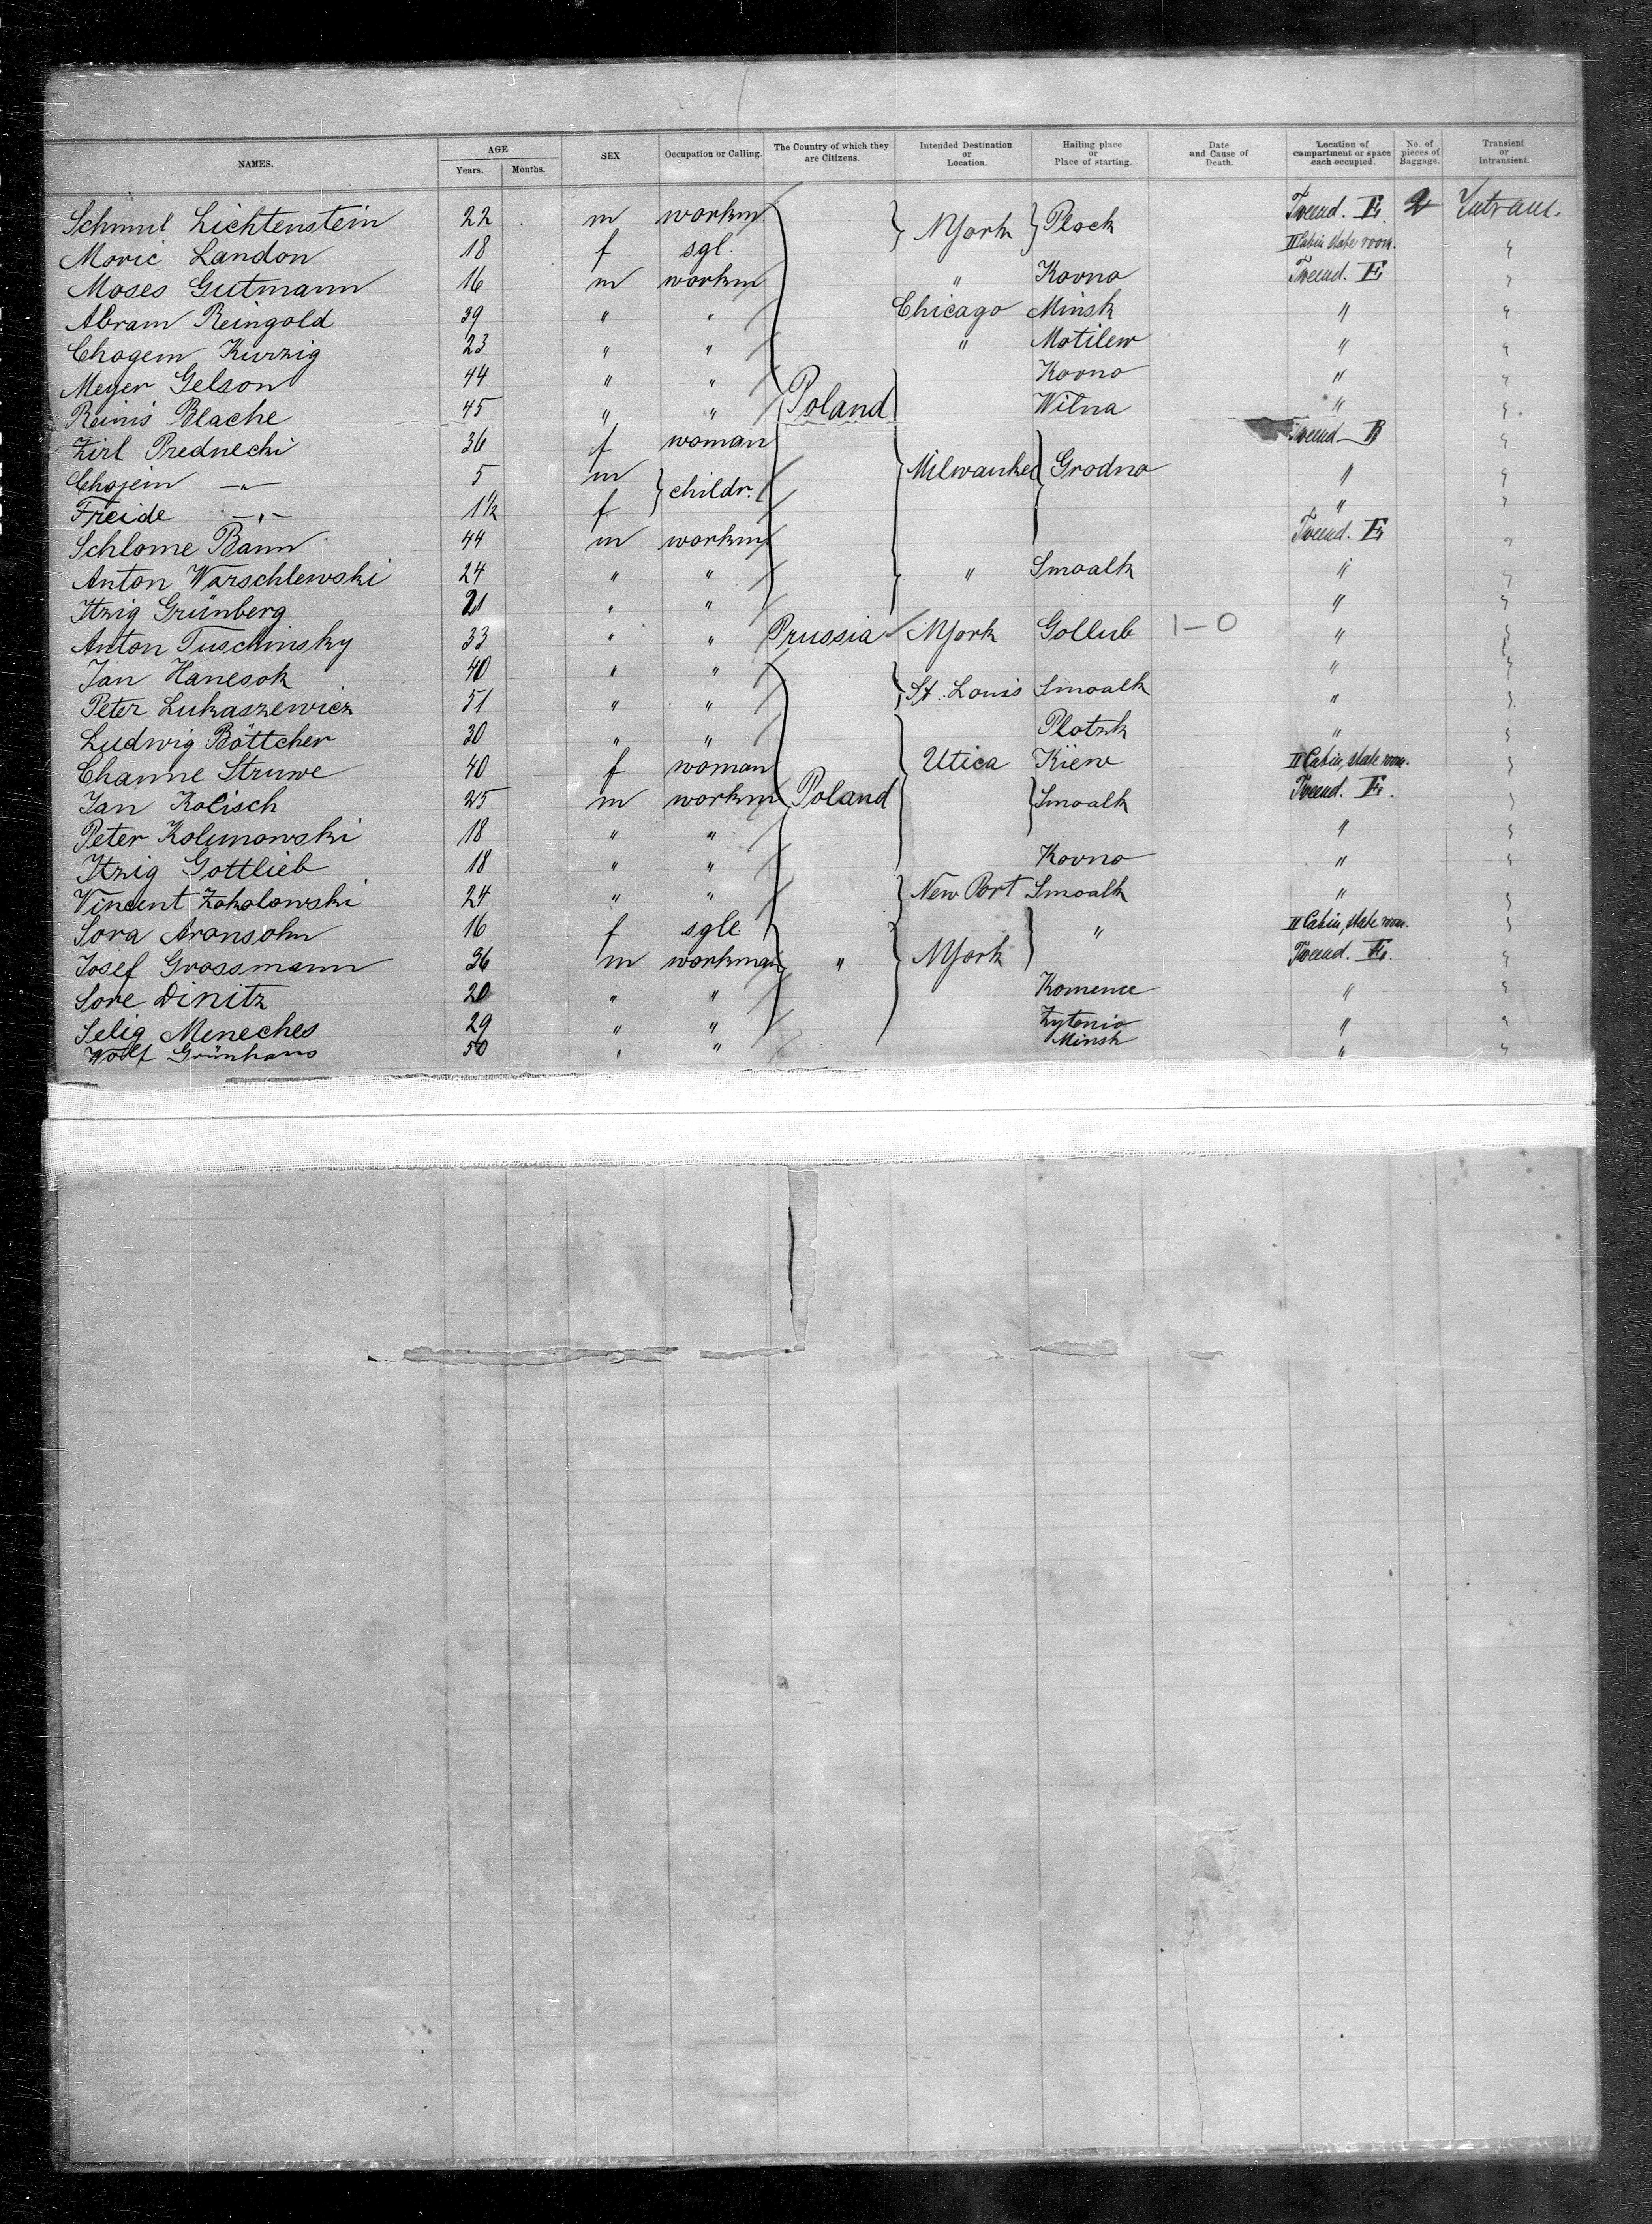 NAMES. AGE Years. Months. SEX Occupation or Calling. The Country of which they are Citizens. Intended Destination or Location. Hailing place or Place of starting. Date and Cause of Death. Location of compartment or space each occupied. No. of pieces of Baggage. Transient or Intransient.
Schmul Lichtenstein 22 m workm NYork Plock Tweed. E. 2 Intrans.
Moric Landon 18 f sgl. II Cabin state room. "
Moses Gutmann 16 m workm " Kovno Tweed. E "
Abram Reingold 39 " " Chicago Minsk " "
Chagem Kurzig 23 " " " Motilew " "
Meyer Gelson 44 " " Kovno " "
Reinis Blache 45 " " Poland Wilna " "
Zirl Prednecki 36 f woman Tweed B "
Chajem -"- 5 m childr. Milwaukee Grodno " "
Freide -"- 1 1/2 f " "
Schlome Bann 44 m workm Tweed. E "
Anton Warschlewski 24 " " " Smoalk " "
Itzig Grünberg 21 " " " "
Anton Tuschinsky 33 " " Prussia NYork Gollub 1-0 " "
Jan Hanesok 40 " " " "
Peter Lukaszewicz 51 " " St. Louis Smoalk " "
Ludwig Böttcher 30 " " Plotzk " "
Channe Struwe 40 f woman Utica Kiew II Cabin, state room. "
Jan Kolisch 25 m workm Poland Smoalk Tweed. E. "
Peter Kolunowski 18 " " " "
Itzig Gottlieb 18 " " Kovno " "
Vincent Zakolowski 24 " " New Port Smoalk " "
Sora Aronsohn 16 f sgle " II Cabin, state room. "
Josef Grossmann 36 m workman " NYork Tweed. E. "
Sore Dinitz 20 " " Komence " "
Selig Meneches 29 " " Zytonio " "
Wolf Grünhaus 50 " " Minsk " "